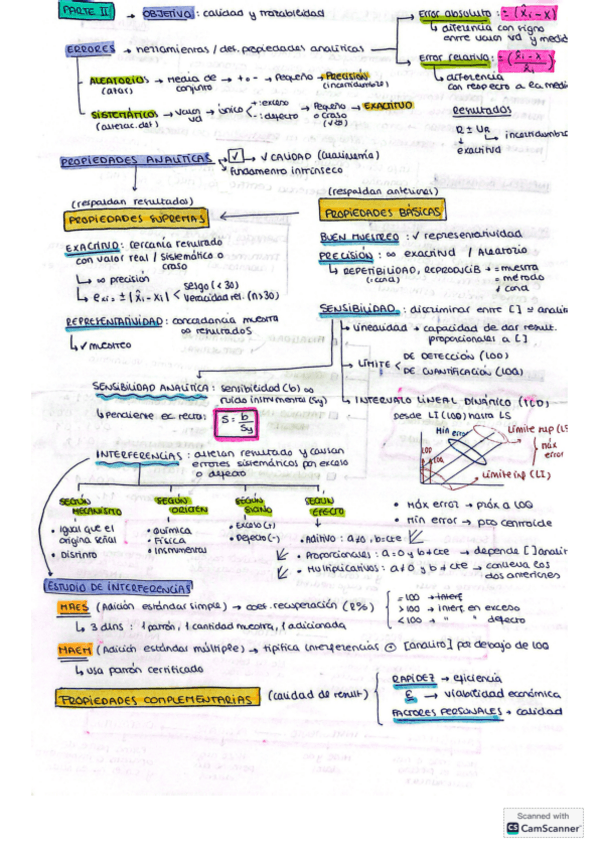 PARTE II → OBJETIVO : calidad y trazabilidad
Error absoluto : ± (x̂i - x)
↳ diferencia con signo
entre valor vd y medid
ERRORES → herramientas / det. propiedades analíticas
Error relativo : ± (x̂i - x / x̂i)
↳ diferencia
con respecto a la medi
ALEATORIOS → Media de conjunto → + o - → Pequeño → PRECISIÓN
(azar) (incertidumbre)
SISTEMÁTICOS → valor vd → único < + : exceso - : defecto → Pequeño o craso → EXACTITUD
(alterac. det)
Resultados
R ± UR
↳ incertidumbre
↓
exactitud
PROPIEDADES ANALÍTICAS → ✓ CALIDAD (cualimetría)
fundamento intrínseco
(respaldan resultados)
PROPIEDADES SUPREMAS
(respaldan anteriores)
PROPIEDADES BÁSICAS
EXACTITUD : cercanía resultado
con valor real / sistemático o
craso
↳ ∞ precisión
↳ exi = ± | x̂i - xi | < sesgo (< 30) veracidad rel. (n > 30)
REPRESENTATIVIDAD : concordancia muestra
∞ resultados
↳ ✓ muestreo
BUEN MUESTREO : ✓ representatividad
PRECISIÓN : ∞ exactitud / Aleatorio
↳ REPETIBILIDAD, REPRODUCIB + = muestra
= método
≠ cond
SENSIBILIDAD : discriminar entre [ ] = analit
↳ Linealidad → capacidad de dar result.
proporcionales a [ ]
↳ LÍMITE < DE DETECCIÓN (LOD)
DE CUANTIFICACIÓN (LOQ)
↳ INTERVALO LINEAL DINÁMICO (ILD)
desde LI (LOQ) hasta LS
SENSIBILIDAD ANALÍTICA : sensibilidad (b) ∞
ruido instrumental (Sy)
↳ pendiente ec recta : S = b / Sy
Min error
Límite sup (LS
máx error
LOD
LOQ
Límite inf (LI)
INTERFERENCIAS : alteran resultado y causan
errores sistemáticos por exceso
o defecto
SEGÚN MECANISMO
• Igual que el
origina señal
• Distinto
SEGÚN ORIGEN
• Química
• Física
• Instrumental
SEGÚN SIGNO
• Exceso (+)
• Defecto (-)
SEGÚN EFECTO
• Aditivo : a≠0, b = cte
• Proporcionales : a = 0 y b ≠ cte → depende [ ] analit
• Multiplicativos : a ≠ 0 y b ≠ cte → conlleva los
dos anteriores
• Máx error → próx a LOQ
• Min error → pto centroide
ESTUDIO DE INTERFERENCIAS
MAES (Adición estándar simple) → coef. recuperación (R%)
= 100 → interf
> 100 → interf en exceso
< 100 → " " defecto
↳ 3 dlns : 1 patrón, 1 cantidad muestra, 1 adicionada
MAEM (Adición estándar múltiple) → tipifica interferencias ⊕ [analito] por debajo de LOQ
↳ usa patrón certificado
PROPIEDADES COMPLEMENTARIAS (calidad de result)
RAPIDEZ → eficiencia
€ → viabilidad económica
FACTORES PERSONALES → calidad
Scanned with
CS CamScanner